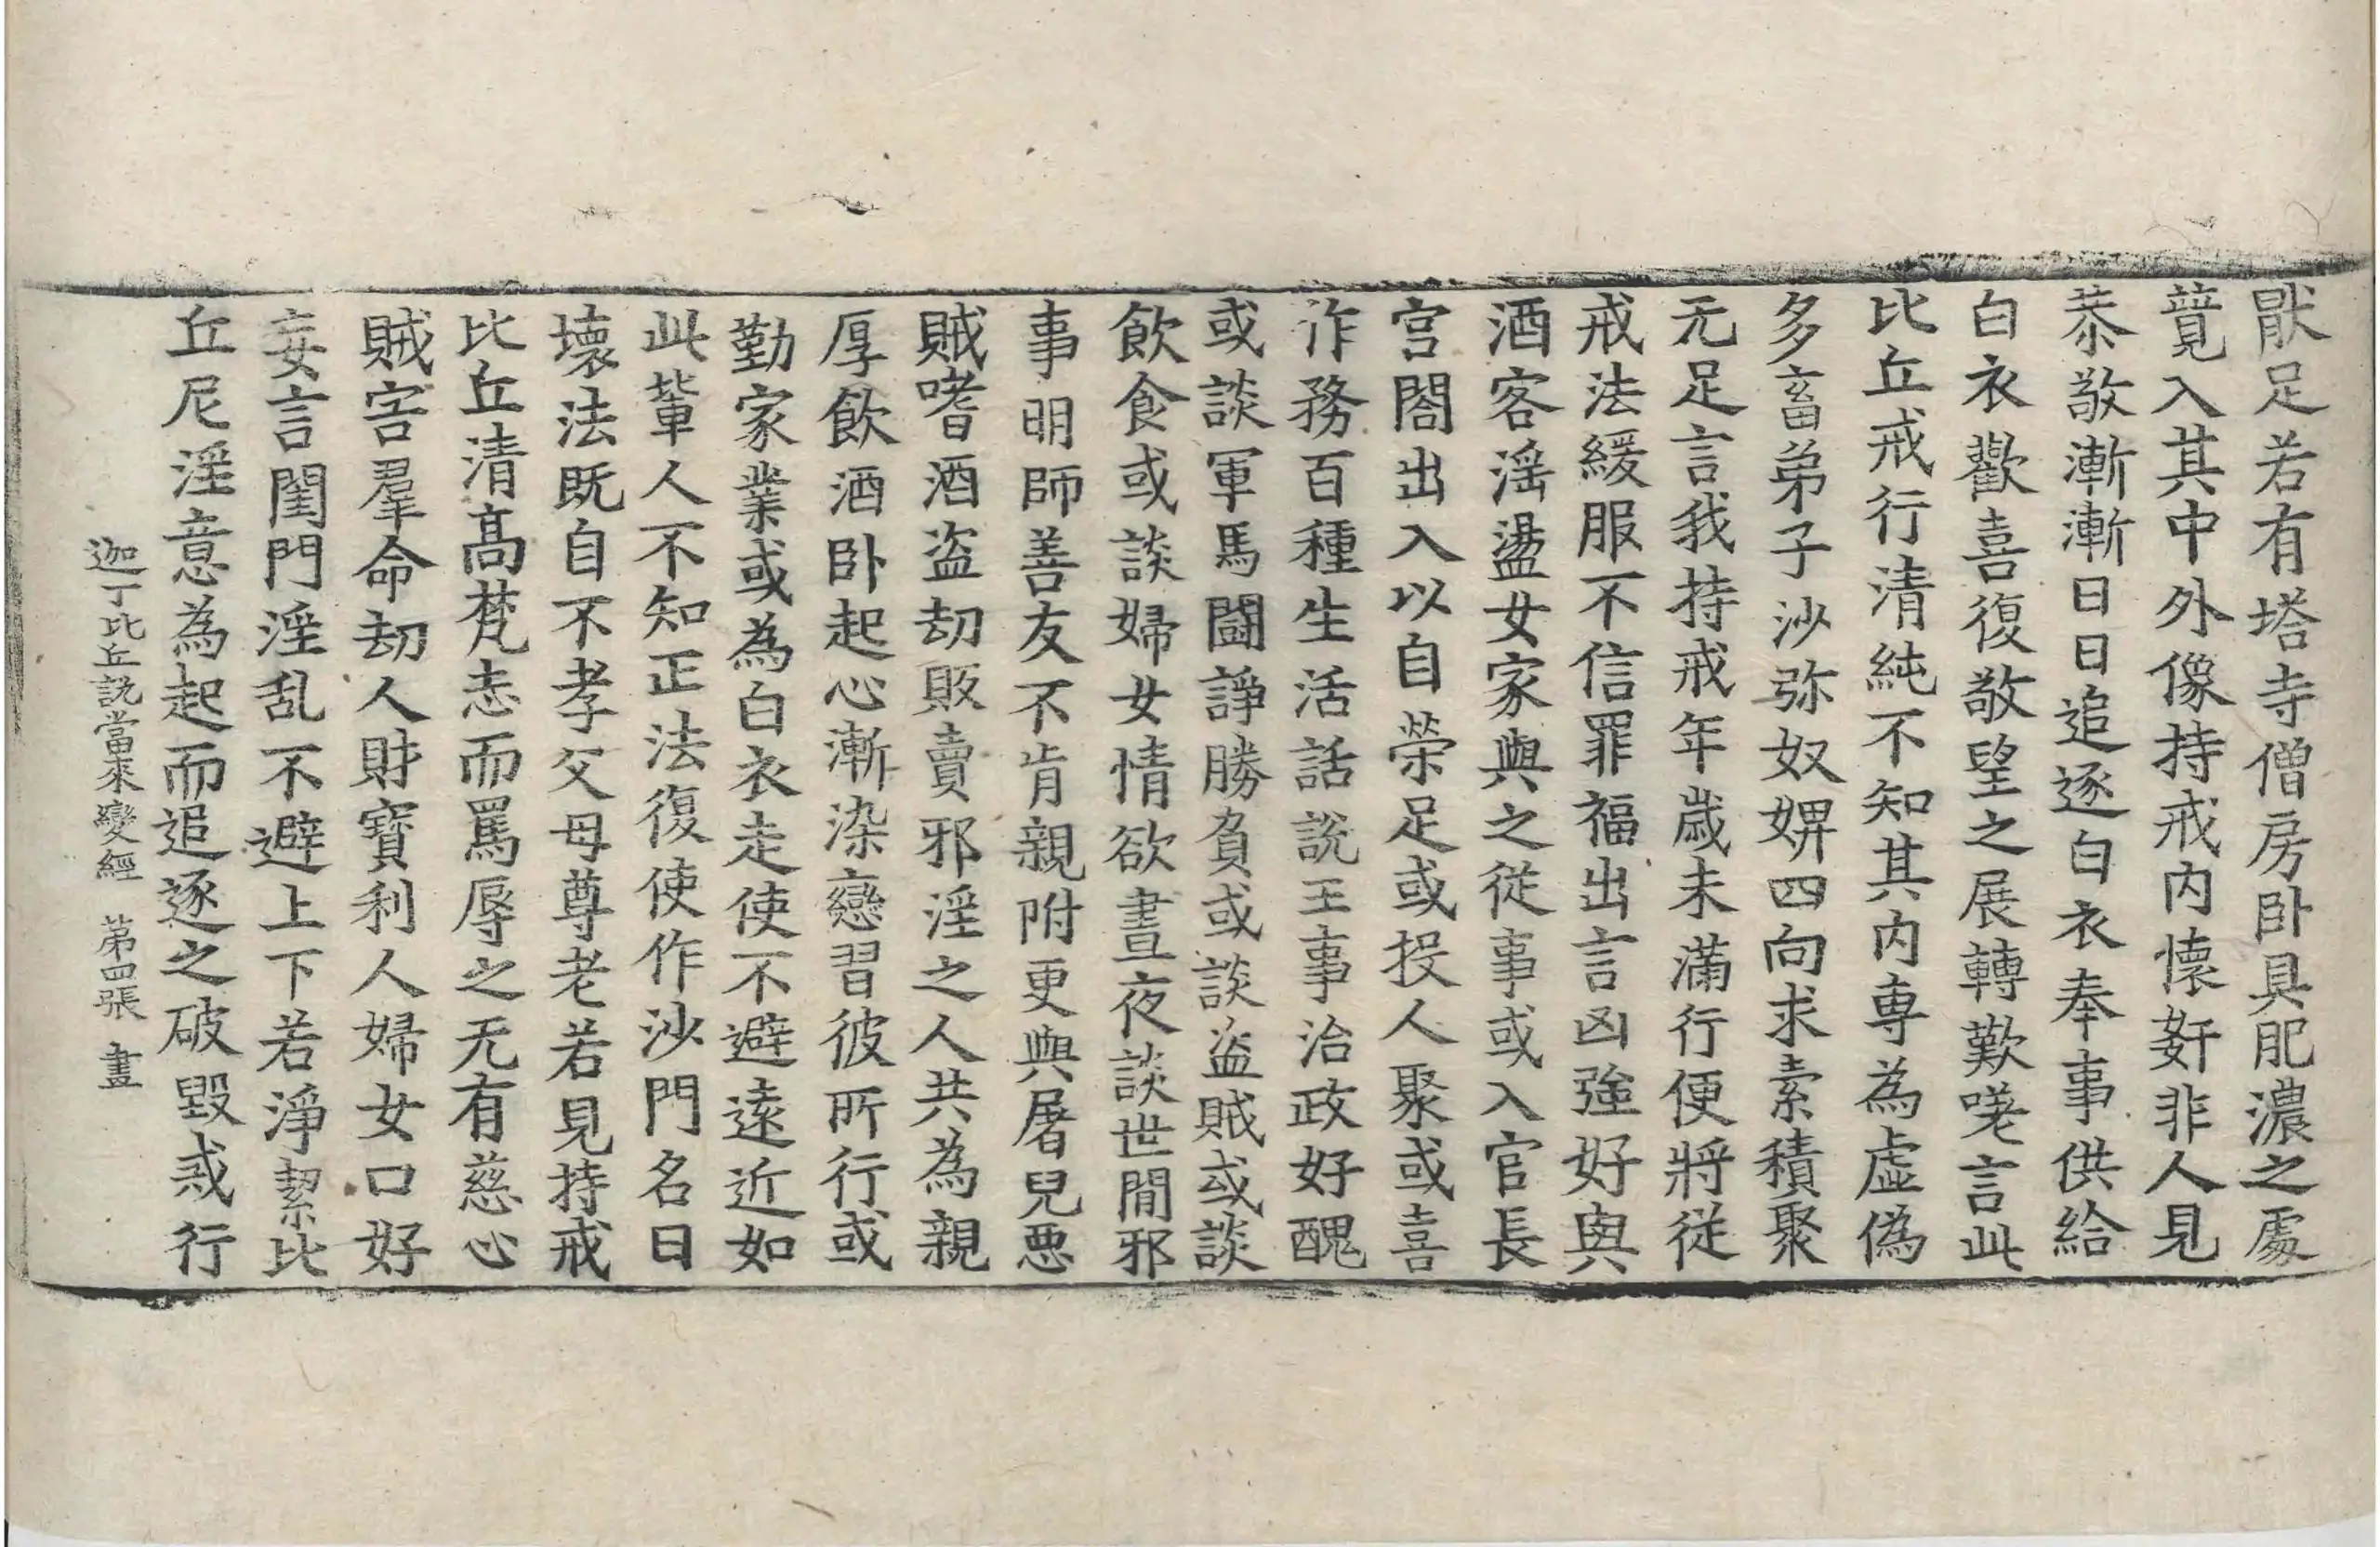 猒足若有塔寺僧房卧具肥濃之處
竟入其中外像持戒内懷姧非人見
恭敬漸漸日日追逐白衣奉事供給
白衣歡喜復敬望之展轉歎㗖言此
比丘戒行清純不知其内專為虛偽
多畜弟子沙弥奴婢四向求索積聚
无足言我持戒年歲未滿行便將從
戒法緩服不信罪福出言凶強好與
酒客滛盪女家與之從事或入官長
宫閤出入以自榮足或投人聚或喜
作務百種生活話說王事治政好醜
或談軍馬鬪諍勝負或談盗賊或談
飲食或談婦女情欲晝夜談世間邪
事明師善友不肯親附更與屠兒悪
賊嗜酒盗劫販賣邪淫之人共為親
厚飲酒卧起心漸染戀習彼所行或
勤家業或為白衣走使不避遠近如
此軰人不知正法復使作沙門名曰
壞法既自不孝父母尊老若見持戒
比丘清髙梵志而罵辱之无有慈心
賊害羣命劫人財寶利人婦女口好
妄言閨門淫乱不避上下若淨絜比
丘尼淫意為起而追逐之破毀戒行
迦丁比丘說當來變經 苐四張 晝